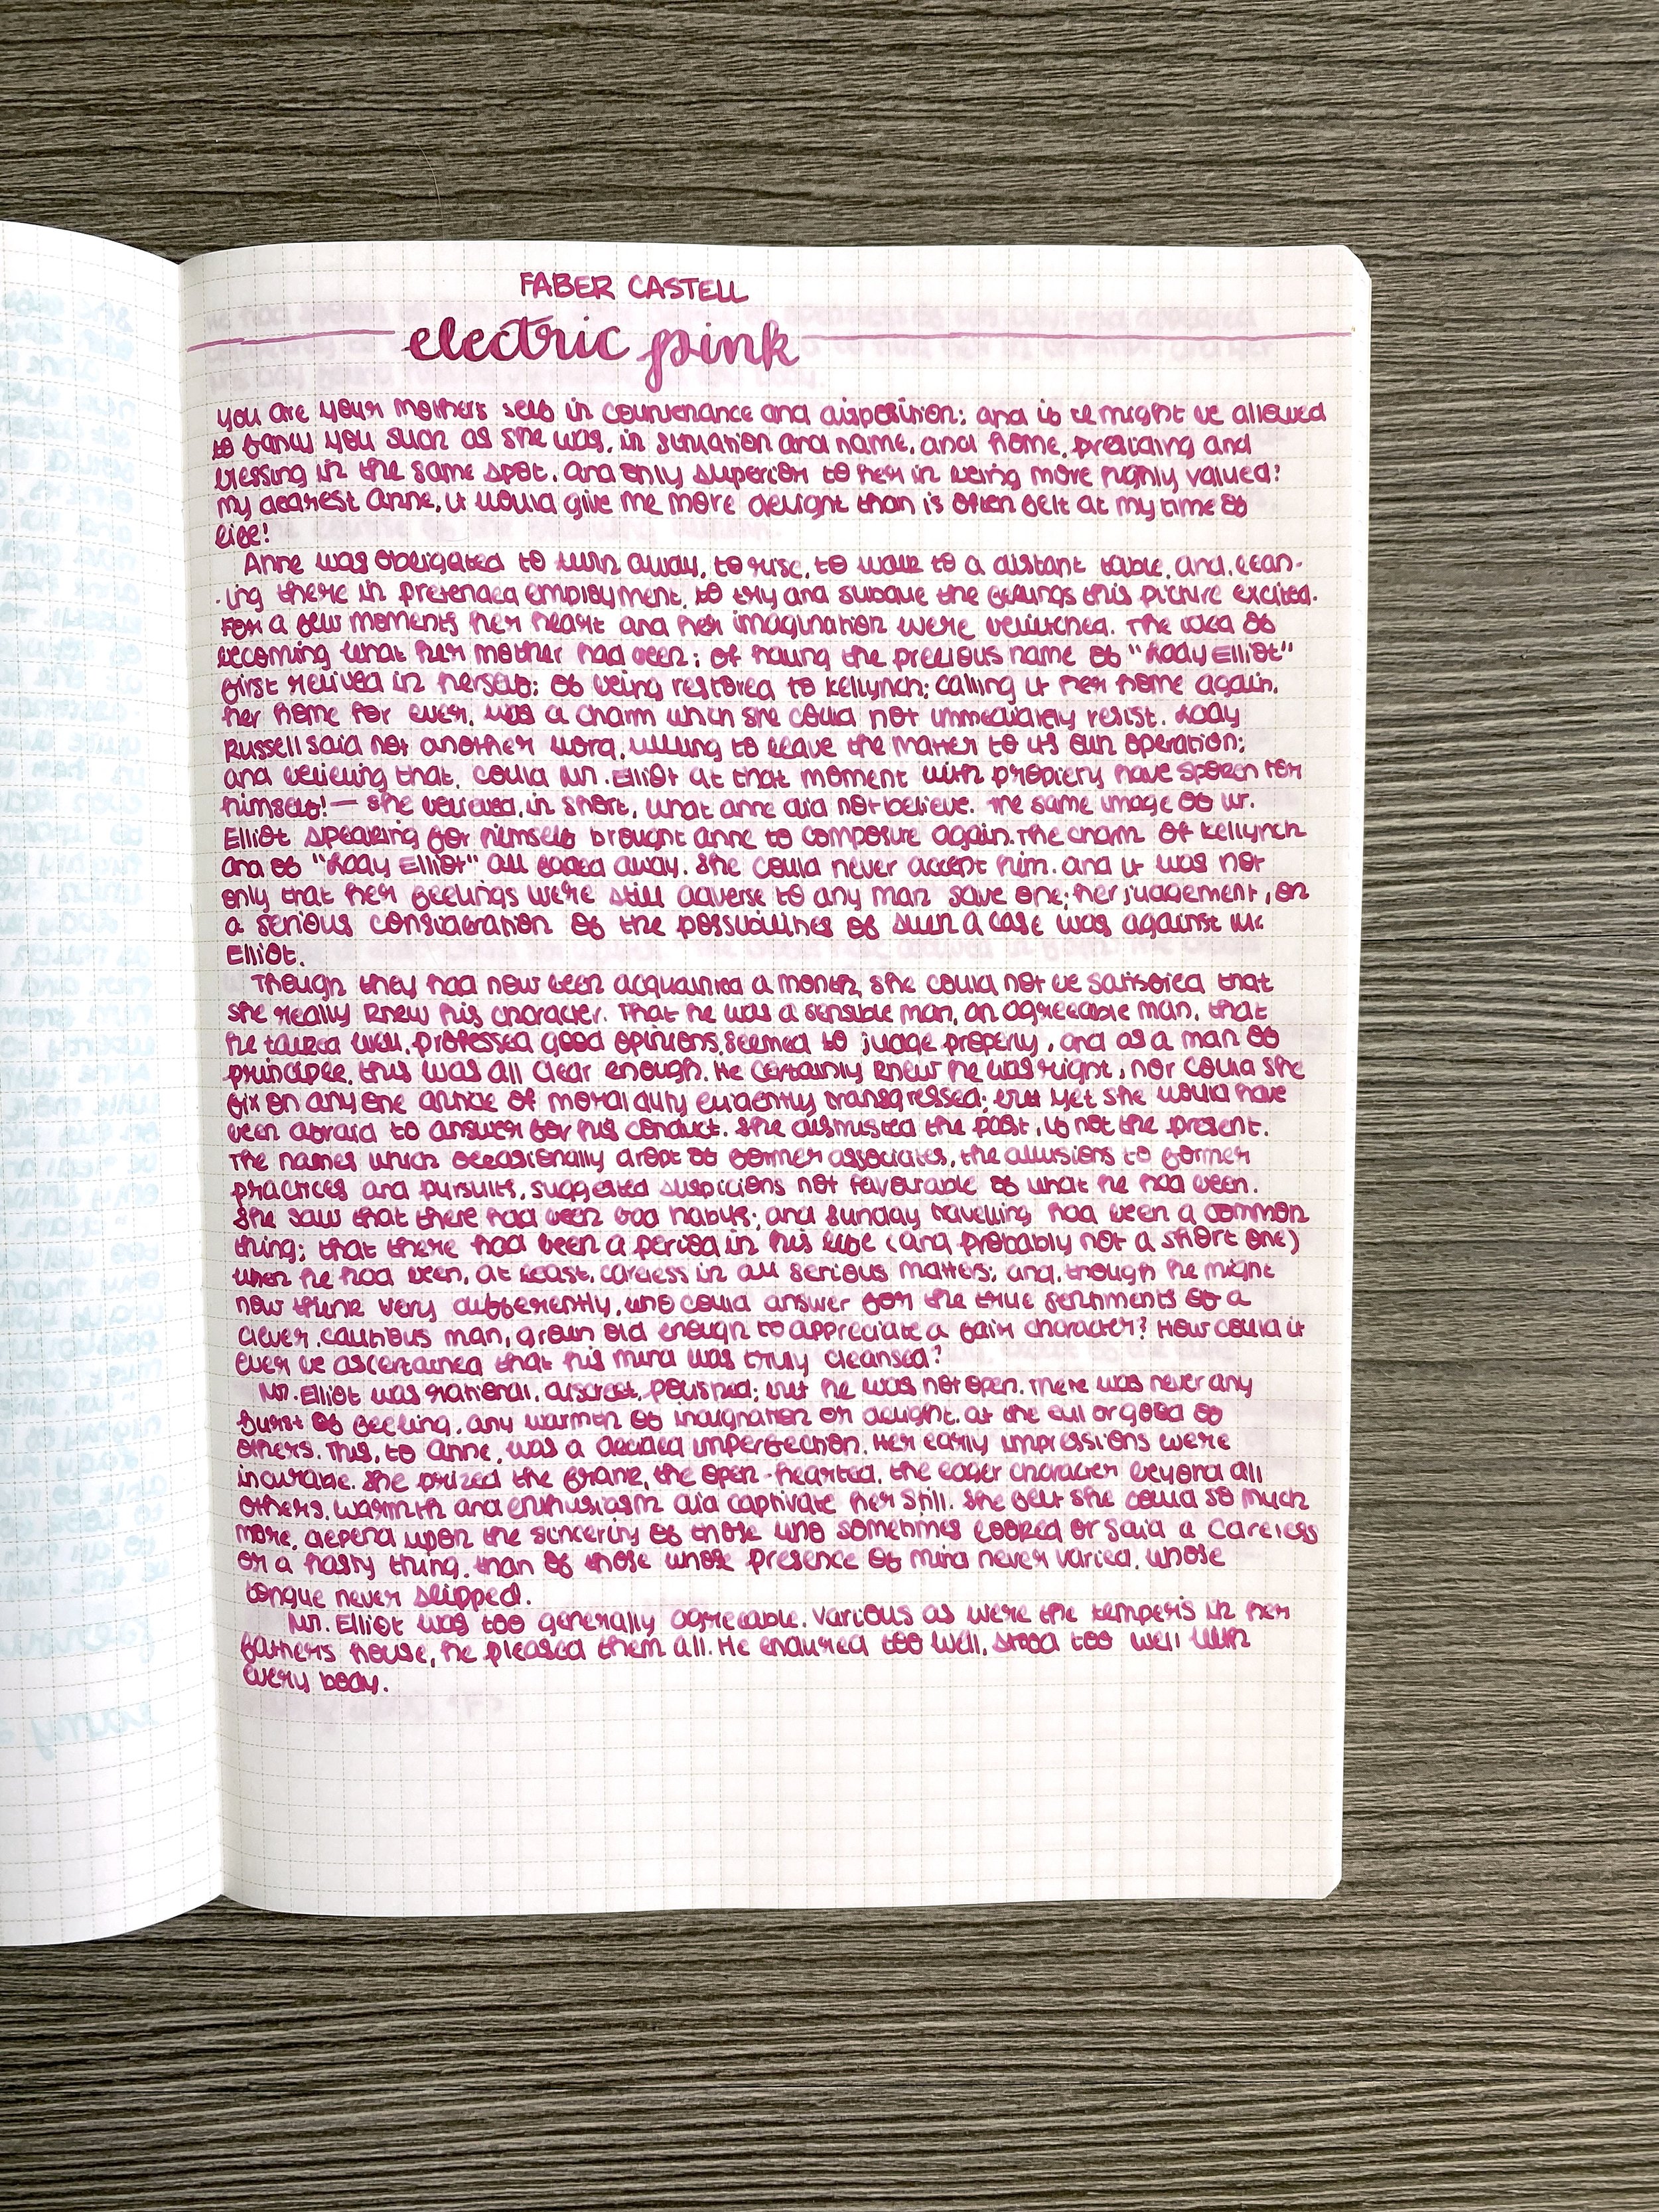 FABER CASTELL
electric pink
you are your mothers self in countenance and disposition; and if I might be allowed
to fancy you such as she was, in situation and name, and home, presiding and
blessing in the same spot, and only superior to her in being more highly valued!
my dearest Anne, it would give me more delight than is often felt at my time of
life!
Anne was obligated to turn away, to rise, to walk to a distant table, and, lean-
-ing there in pretended employment, to try and subdue the feelings this picture excited.
For a few moments her heart and her imagination were bewitched. The idea of
becoming what her mother had been; of having the precious name of "Lady Elliot"
first revived in herself; of being restored to Kellynch; calling it her home again,
her home for ever, was a charm which she could not immediately resist. Lady
Russell said not another word, willing to leave the matter to its own operation;
and believing that, could Mr. Elliot at that moment with propriety have spoken for
himself! — she believed, in short, what Anne did not believe. The same image of Mr.
Elliot speaking for himself brought Anne to composure again. The charm of Kellynch
and of "Lady Elliot" all faded away. She could never accept him. and it was not
only that her feelings were still adverse to any man save one; her judgement, on
a serious consideration of the possibilities of such a case was against Mr.
Elliot.
Though they had now been acquainted a month, she could not be satisfied that
she really knew his character. That he was a sensible man, an agreeable man, that
he talked well, professed good opinions, seemed to judge properly, and as a man of
principle, this was all clear enough. He certainly knew he was right, nor could she
fix on anyone article of moral duty evidently transgressed; but yet she would have
been afraid to answer for his conduct. She distrusted the past, if not the present.
The names which occasionally dropt of former associates, the allusions to former
practices and pursuits, suggested suspicions not favourable of what he had been.
She saw that there had been bad habits; and Sunday travelling had been a common
thing; that there had been a period in his life (and probably not a short one)
when he had been, at least, careless in all serious matters; and, though he might
now think very differently, who could answer for the true sentiments of a
clever, cautious man, grown old enough to appreciate a fair character? How could it
ever be ascertained that his mind was truly cleansed?
Mr. Elliot was rational, discreet, polished; but he was not open. There was never any
burst of feeling, any warmth of indignation or delight, at the evil or good of
others. This, to Anne, was a decided imperfection. Her early impressions were
incurable. She prized the frank, the open-hearted, the eager character beyond all
others. Warmth and enthusiasm did captivate her still. She felt she could so much
more, depend upon the sincerity of those who sometimes looked or said a careless
or a hasty thing, than of those whose presence of mind never varied, whose
tongue never slipped.
Mr. Elliot was too generally agreeable. Various as were the tempers in her
fathers house, he pleased them all. He endured too well, stood too well with
every body.